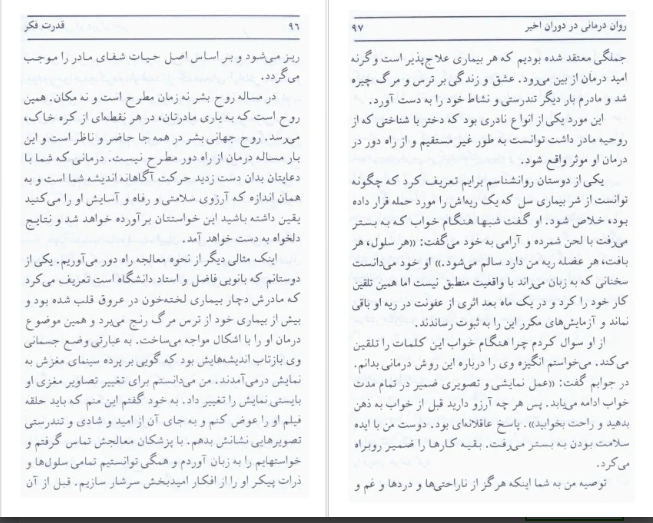 ۹۶ قدرت فکر
ریز می‌شود و بر اساس اصل حیات شفای مادر را موجب
می‌گردد.
در مساله روح بشر نه زمان مطرح است و نه مکان. همین
روح است که به یاری مادرتان، در هر نقطه‌ای از کره خاک،
می‌رسد. روح جهانی بشر در همه جا حاضر و ناظر است و این
بار مساله درمان از راه دور مطرح نیست. درمانی که شما با
دعایتان بدان دست زدید حرکت آگاهانه اندیشه شما است و به
همان اندازه که آرزوی سلامتی و رفاه و آسایش او را می‌کنید
یقین داشته باشید این خواستتان برآورده خواهد شد و نتایج
دلخواه به دست خواهد آمد.
اینک مثالی دیگر از نحوه معالجه راه دور می‌آوریم. یکی از
دوستانم که بانویی فاضل و استاد دانشگاه است تعریف می‌کرد
که مادرش دچار بیماری لخته‌خون در عروق قلب شده بود و
بیش از بیماری خود از ترس مرگ رنج می‌برد و همین موضوع
درمان او را با اشکال مواجه می‌ساخت. به عبارتی وضع جسمانی
وی بازتاب اندیشه‌هایش بود که گویی بر پرده سینمای مغزش به
نمایش درمی‌آمدند. من می‌دانستم برای تغییر تصاویر مغزی او
بایستی نمایش را تغییر داد. به خود گفتم این منم که باید حلقه
فیلم او را عوض کنم و به جای آن از امید و شادی و تندرستی
تصویرهایی نشانش بدهم. با پزشکان معالجش تماس گرفتم و
خواستهایم را به زبان آوردم و همگی توانستیم تمامی سلول‌ها و
ذرات پیکر او را از افکار امیدبخش سرشار سازیم. قبل از آن
روان درمانی در دوران اخیر ۹۷
جملگی معتقد شده بودیم که هر بیماری علاج‌پذیر است و گرنه
امید درمان از بین می‌رود. عشق و زندگی بر ترس و مرگ چیره
شد و مادرم بار دیگر تندرستی و نشاط خود را به دست آورد.
این مورد یکی از انواع نادری بود که دختر با شناختی که از
روحیه مادر داشت توانست به طور غیر مستقیم و از راه دور در
درمان او موثر واقع شود.
یکی از دوستان روانشناسم برایم تعریف کرد که چگونه
توانست از شر بیماری سل که یک ریه‌اش را مورد حمله قرار داده
بود، خلاص شود. او گفت شبها هنگام خواب که به بستر
می‌رفت با لحن شمرده و آرامی به خود می‌گفت: «هر سلول، هر
بافت، هر عضله ریه من دارد سالم می‌شود.» او خود می‌دانست
سخنانی که به زبان می‌راند با واقعیت منطبق نیست اما همین تلقین
کار خود را کرد و در یک ماه بعد اثری از عفونت در ریه او باقی
نماند و آزمایش‌های مکرر این را به ثبوت رساندند.
از او سوال کردم چرا هنگام خواب این کلمات را تلقین
می‌کند. می‌خواستم انگیزه وی را درباره این روش درمانی بدانم.
در جوابم گفت: «عمل نمایشی و تصویری ضمیر در تمام مدت
خواب ادامه می‌یابد. پس هر چه آرزو دارید قبل از خواب به ذهن
بدهید و راحت بخوابید». پاسخ عاقلانه‌ای بود. دوست من با ایده
سلامت بودن به بستر می‌رفت. بقیه کارها را ضمیر روبراه
می‌کرد.
توصیه من به شما اینکه هرگز از ناراحتی‌ها و دردها و غم و